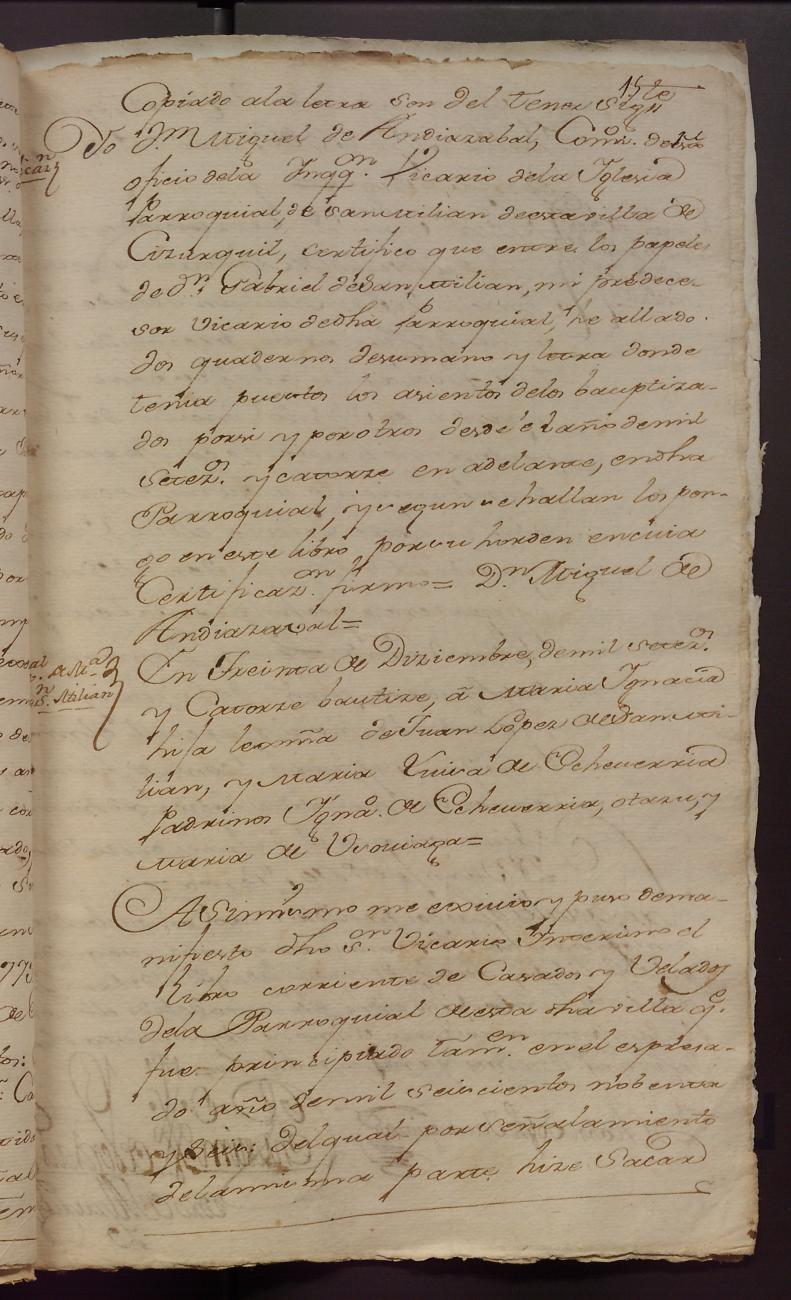 15
Copiado ala letra son del tenor sigte
Yo Dn. Miguel de Andiazabal, Comro. del sto
oficio dela Inqqon. Vicario dela Iglesia
Parroquial, de san Milian de esta villa de
Cizurquil, certifico que entre los papeles
de Dn. Gabriel de San Milian, mi predece-
sor vicario de dha Parroquial, he allado
dos quadernos de su mano y letra donde
tenia puestos los asientos delos bautiza-
dos por si y por otros desde el año de mil
Setezos. y catorze en adelante, en dha
Parroquial, y segun se hallan los pon-
go en este libro por su horden en cuia
Certificazon. firmo= Dn. Miguel de
Andiazaval=
Sn. Milian
En Treinta de Diziembre, de mil setezos.
y Catorze bautize, â Maria Ignacia
hija lexma de Juan Lopez de San Mi-
lian, y Maria Luisa de Echeverria
Padrinos Ignao. de Echeverria, otazu, y
Maria de Usoviaga=
Asimismo me exivio y puso dema-
nifiesto dho sor. Vicario Interino el
Libro corriente de Casados y Velados
dela Parroquial de esta dha villa qe.
fue principiado tamen. en el espresa-
do año de mil seiscientos nobenta
y seis: del qual por señalamiento
dela misma parte hize Sacar